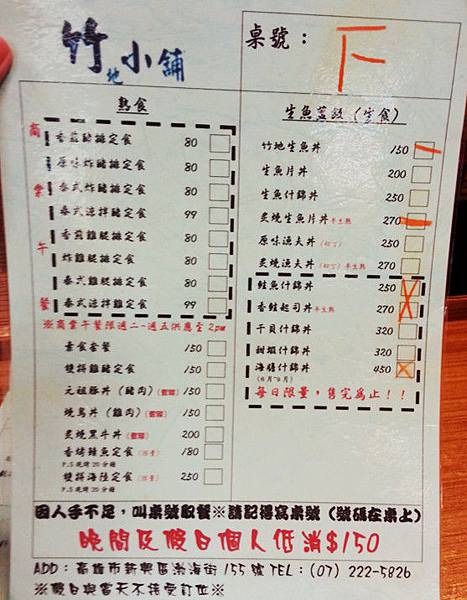 竹地小舖
桌號：下
熟食
商業午餐
香菇豬排定食 80
原味炸豬排定食 80
泰式炸豬排定食 80
泰式涼拌豬定食 99
香菇雞腿排定食 80
炸雞腿排定食 80
泰式雞腿定食 80
泰式涼拌雞定食 99
※商業午餐限週二~週五供應至2pm
素食套餐 150
雙拼雞定食 150
元祖豚丼（豬肉） 150
燒鳥丼（雞肉） 150
炙燒黑牛丼 200
香烤鮭魚定食（限量） 180
P.S現烤20分鐘
雙拼海陸定食（限量） 250
P.S現烤20分鐘
生魚蓋飯（生食）
竹地生魚丼 150
生魚片丼 200
生魚什錦丼 250
炙燒生魚片丼 半生熟 270
原味漁夫丼（切丁） 250
炙燒漁夫丼（切丁）半生熟 270
鮭魚什錦丼 250
香鮭起司丼 半生熟 270
干貝什錦丼 320
甜蝦什錦丼 320
海膽什錦丼 450
(6月~9月)
每日限量，售完為止！！
因人手不足，叫桌號取餐※請記得寫桌號（號碼在桌上）
晚間及假日個人低消$150
ADD：高雄市新興區渤海街155號 TEL：(07) 222-5826
※假日與當天不接受訂位※